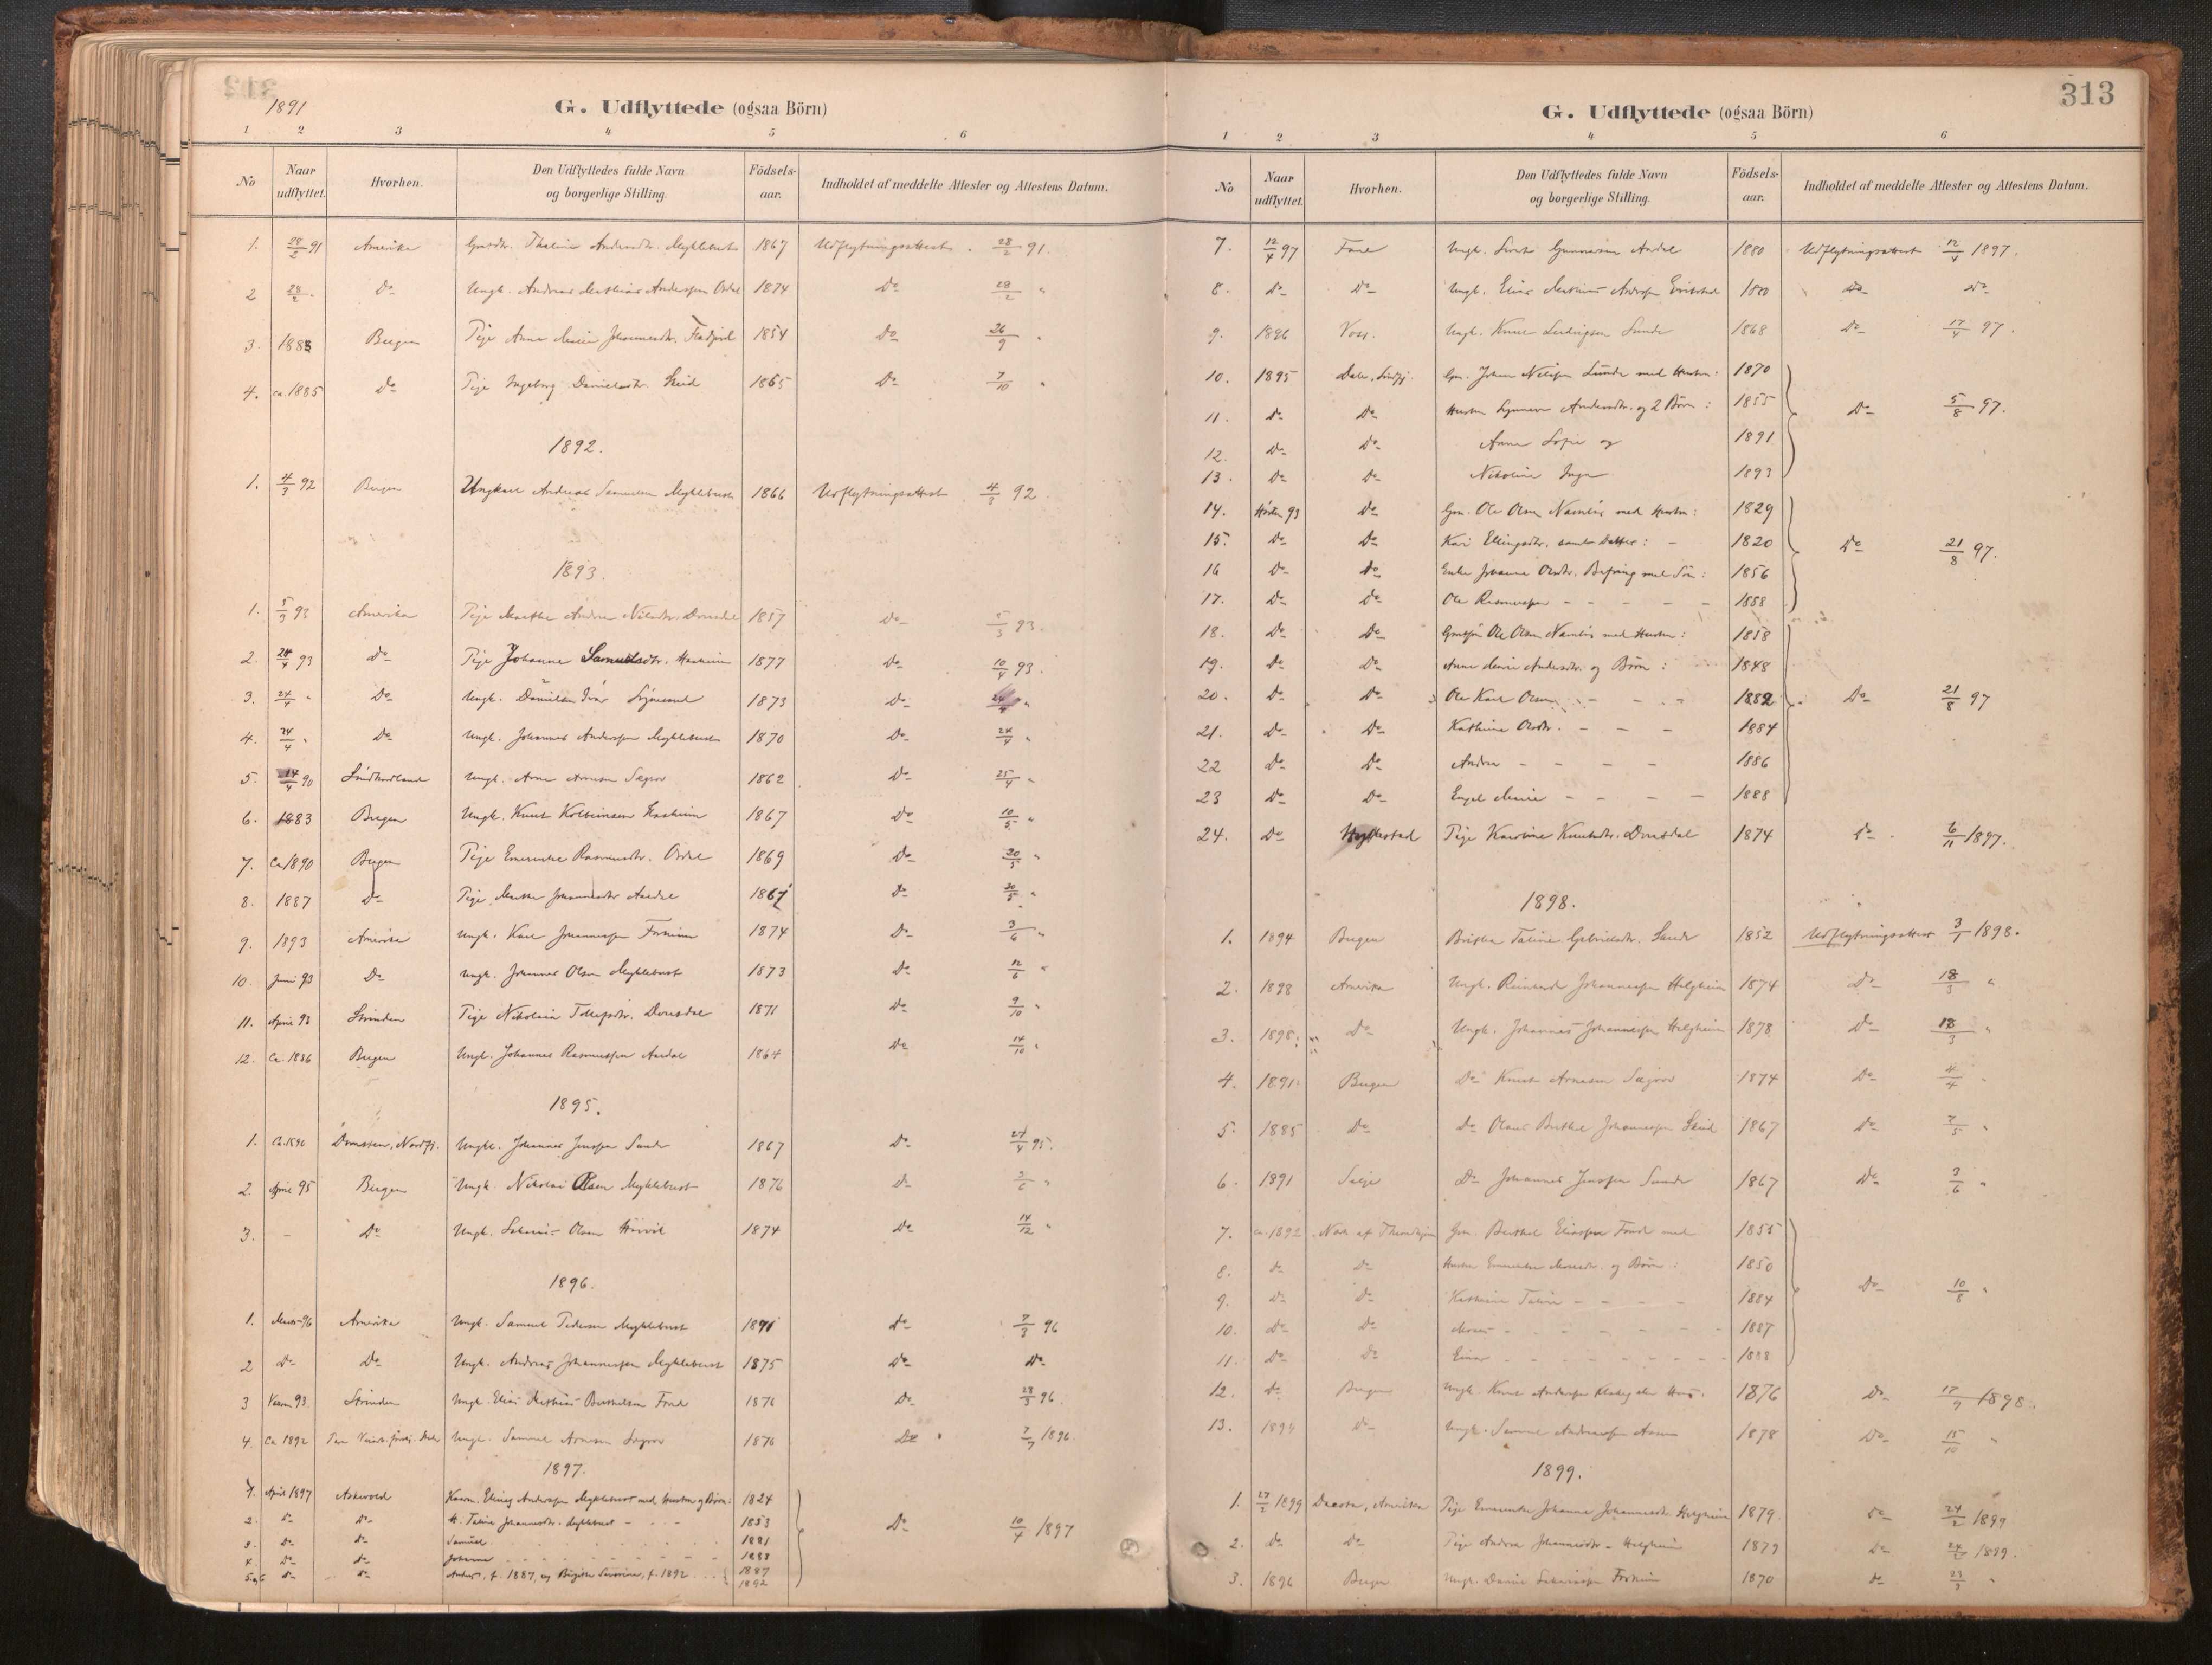 1891
G. Udflyttede (ogsaa Börn)
1 2 3 4 5 6
No Naar udflyttet. Hvorhen. Den Udflyttedes fulde Navn og borgerlige Stilling. Födsels-aar. Indholdet af meddelte Attester og Attestens Datum.
1. 28/2 91 Amerika Thalina Andersdtr. Myklebust 1867 Udflytningsattest. 28/2 91.
2 28/2 " Do Ungk. Andreas Mathias Andersen 1874 Do 28/2 "
3. 1885 Bergen Pige Anna Marie Johannesdtr. 1854 Do 26/9 "
4. ca. 1885 Do Pige Ingeborg Danielsdtr. Skeid 1865 Do 7/10 "
1892.
1. 4/3 92 Bergen Ungkarl Andreas Samuelsen Myklebust 1866 Udflytningsattest 4/3 92.
1893.
1. 5/3 93 Amerika Pige Marthe Andrea Nilsdtr. Dvergsdal 1857 Do 5/3 93.
2. 24/4 93 Do Pige Johanne Samuelsdtr. Haaheim 1877 Do 10/4 93.
3. 24/4 " Do Ungk. Danielsen Ivar 1873 Do 24/4 "
4. 24/4 " Do Ungk. Johannes Andersen Myklebust 1870 Do 24/4 "
5. 14/4 90 Søndhordland Ungk. Arne Arnesen Sægrov 1862 Do 25/4 "
6. 1883 Bergen Ungk. Knut Kolbeinsen 1867 Do 10/5 "
7. Ca 1890 Bergen Pige Emerentse Rasmusdtr. 1869 Do 20/5 "
8. 1887 Do Pige Marthe Johannesdtr Aardal 1867 Do 30/5 "
9. 1893 Amerika Ungk. Karl Johannessen 1874 Do 3/6 "
10. Juni 93 Do Ungk. Johannes Olsen Myklebust 1873 Do 12/6 "
11. April 93 Strinden Pige Nikolina Tollefsdtr. Dvergsdal 1871 Do 9/10 "
12. Ca. 1886 Bergen Ungk. Johannes Rasmussen Aardal 1864 Do 14/10 "
1895.
1. Ca. 1890 Nordfj. Ungk. Johannes Jenssen Sunde 1867 Do 27/4 95.
2. April 95 Bergen Ungk. Nikolai Olsen Myklebust 1876 Do "
3. - Do Ungk. Olsen 1874 Do 14/12 "
1896.
1. Marts 96 Amerika Ungk. Samuel Pedersen Myklebust 1871 Do 7/3 96
2 Do Do Ungk. Andreas Johannessen Myklebust 1875 Do Do
3 93 Strinden Ungk. Elias Mathias Berthelsen Fond 1876 Do 28/3 96.
4. Ca 1892 Ungk. Samuel Arnesen Sægrov 1876 Do 7/7 1896.
1897.
1. April 1897 Askevold Elling Andersen Myklebust med Hustru og Børn: 1824
2. Do Do H. Taline Johannesdtr. Myklebust - - - 1853 Do 10/4 1897
3. Do Do Samuel 1881
4. Do Do Johanna - - - 1883
5 og 6 Do Do Anders, f. 1887, og Birgithe Severine, f. 1892 1887 1892
313
G. Udflyttede (ogsaa Börn)
1 2 3 4 5 6
No Naar udflyttet. Hvorhen. Den Udflyttedes fulde Navn og borgerlige Stilling. Födsels-aar. Indholdet af meddelte Attester og Attestens Datum.
7. 12/4 97 Fane Ungk. Gunnarsen Aardal 1880 Udflytningsattest 12/4 1897.
8. Do Do Ungk. Elias Mathias Andersen 1880 Do Do
9. 1896 Voss. Ungk. Knut Ludvigsen Sunde 1868 Do 17/4 97.
10. 1895 Dale, Søndfj. Gm. Johan Nilsen Sunde med Hustru: 1870
11. Do Do Hustru Synneve Andersdtr. og 2 Børn: 1855 Do 5/8 97.
12. Do Do Anna Sofie og 1891
13. Do Do Nikoline Inga 1893
14. Høsten 93 Do Gm. Ole Olsen med Hustru: 1829
15. Do Do Kari Ellingsdtr. samt Datter: - 1820 Do 21/8 97.
16 Do Do Enke Johanne Olsdtr. Befring med Søn: 1856
17. Do Do Ole Rasmussen - - - - - 1888
18. Do Do Ole Olsen med Hustru: 1858
19. Do Do Anne Marie Andersdtr. og Børn: 1848
20. Do Do Ole Karl Olsen - - - 1882 Do 21/8 97
21. Do Do Kathrine Olsdtr. - - - 1884
22 Do Do Andrea - - - - 1886
23 Do Do Engel Marie - - - - 1888
24. Do Hyllestad Pige Karoline Knutsdtr. Dvergsdal 1874 Do 6/11 1897.
1898.
1. 1894 Bergen Brithe Taline Gabrielsdtr. Sunde 1852 Udflytningsattest 3/1 1898.
2. 1898 Amerika Ungk. Reinhard Johannessen Helgheim 1874 Do 18/3 "
3. 1898: Do Ungk. Johannes Johannessen Helgheim 1878 Do 18/3 "
4. 1891 Bergen Do Knut Arnesen Sægrov 1874 Do 4/4 "
5. 1885 Do Do Olaus Berthel Johannessen Skeid 1867 Do 7/5 "
6. 1891 Selje Do Johannes Jenssen Sunde 1867 Do 3/6 "
7. ca. 1892 Nord af Throndhjem Gm. Berthel Eliassen Fond med 1855
8. Do Do Hustru Emerentse Mosesdtr. og Børn: 1850
9. Do Do Kathrine Taline - - - - 1884 Do 10/8 "
10. Do Do Moses - - - - - - 1887
11. Do Do Einar - - - - - - 1888
12. Do Bergen Ungk. Knut Andersen 1876 Do 17/9 1898.
13. 1894 Do Ungk. Samuel Andreassen 1878 Do 15/10 "
1899.
1. 27/2 1899 Dacota, Amerika Pige Emerentse Johanna Johannesdtr Helgheim 1879. Do 24/2 1899
2. Do Do Pige Andrea Johannesdtr - Helgheim 1879 Do 24/2 1899.
3. 1896 Bergen Ungk. Daniel 1870 Do 23/3 "